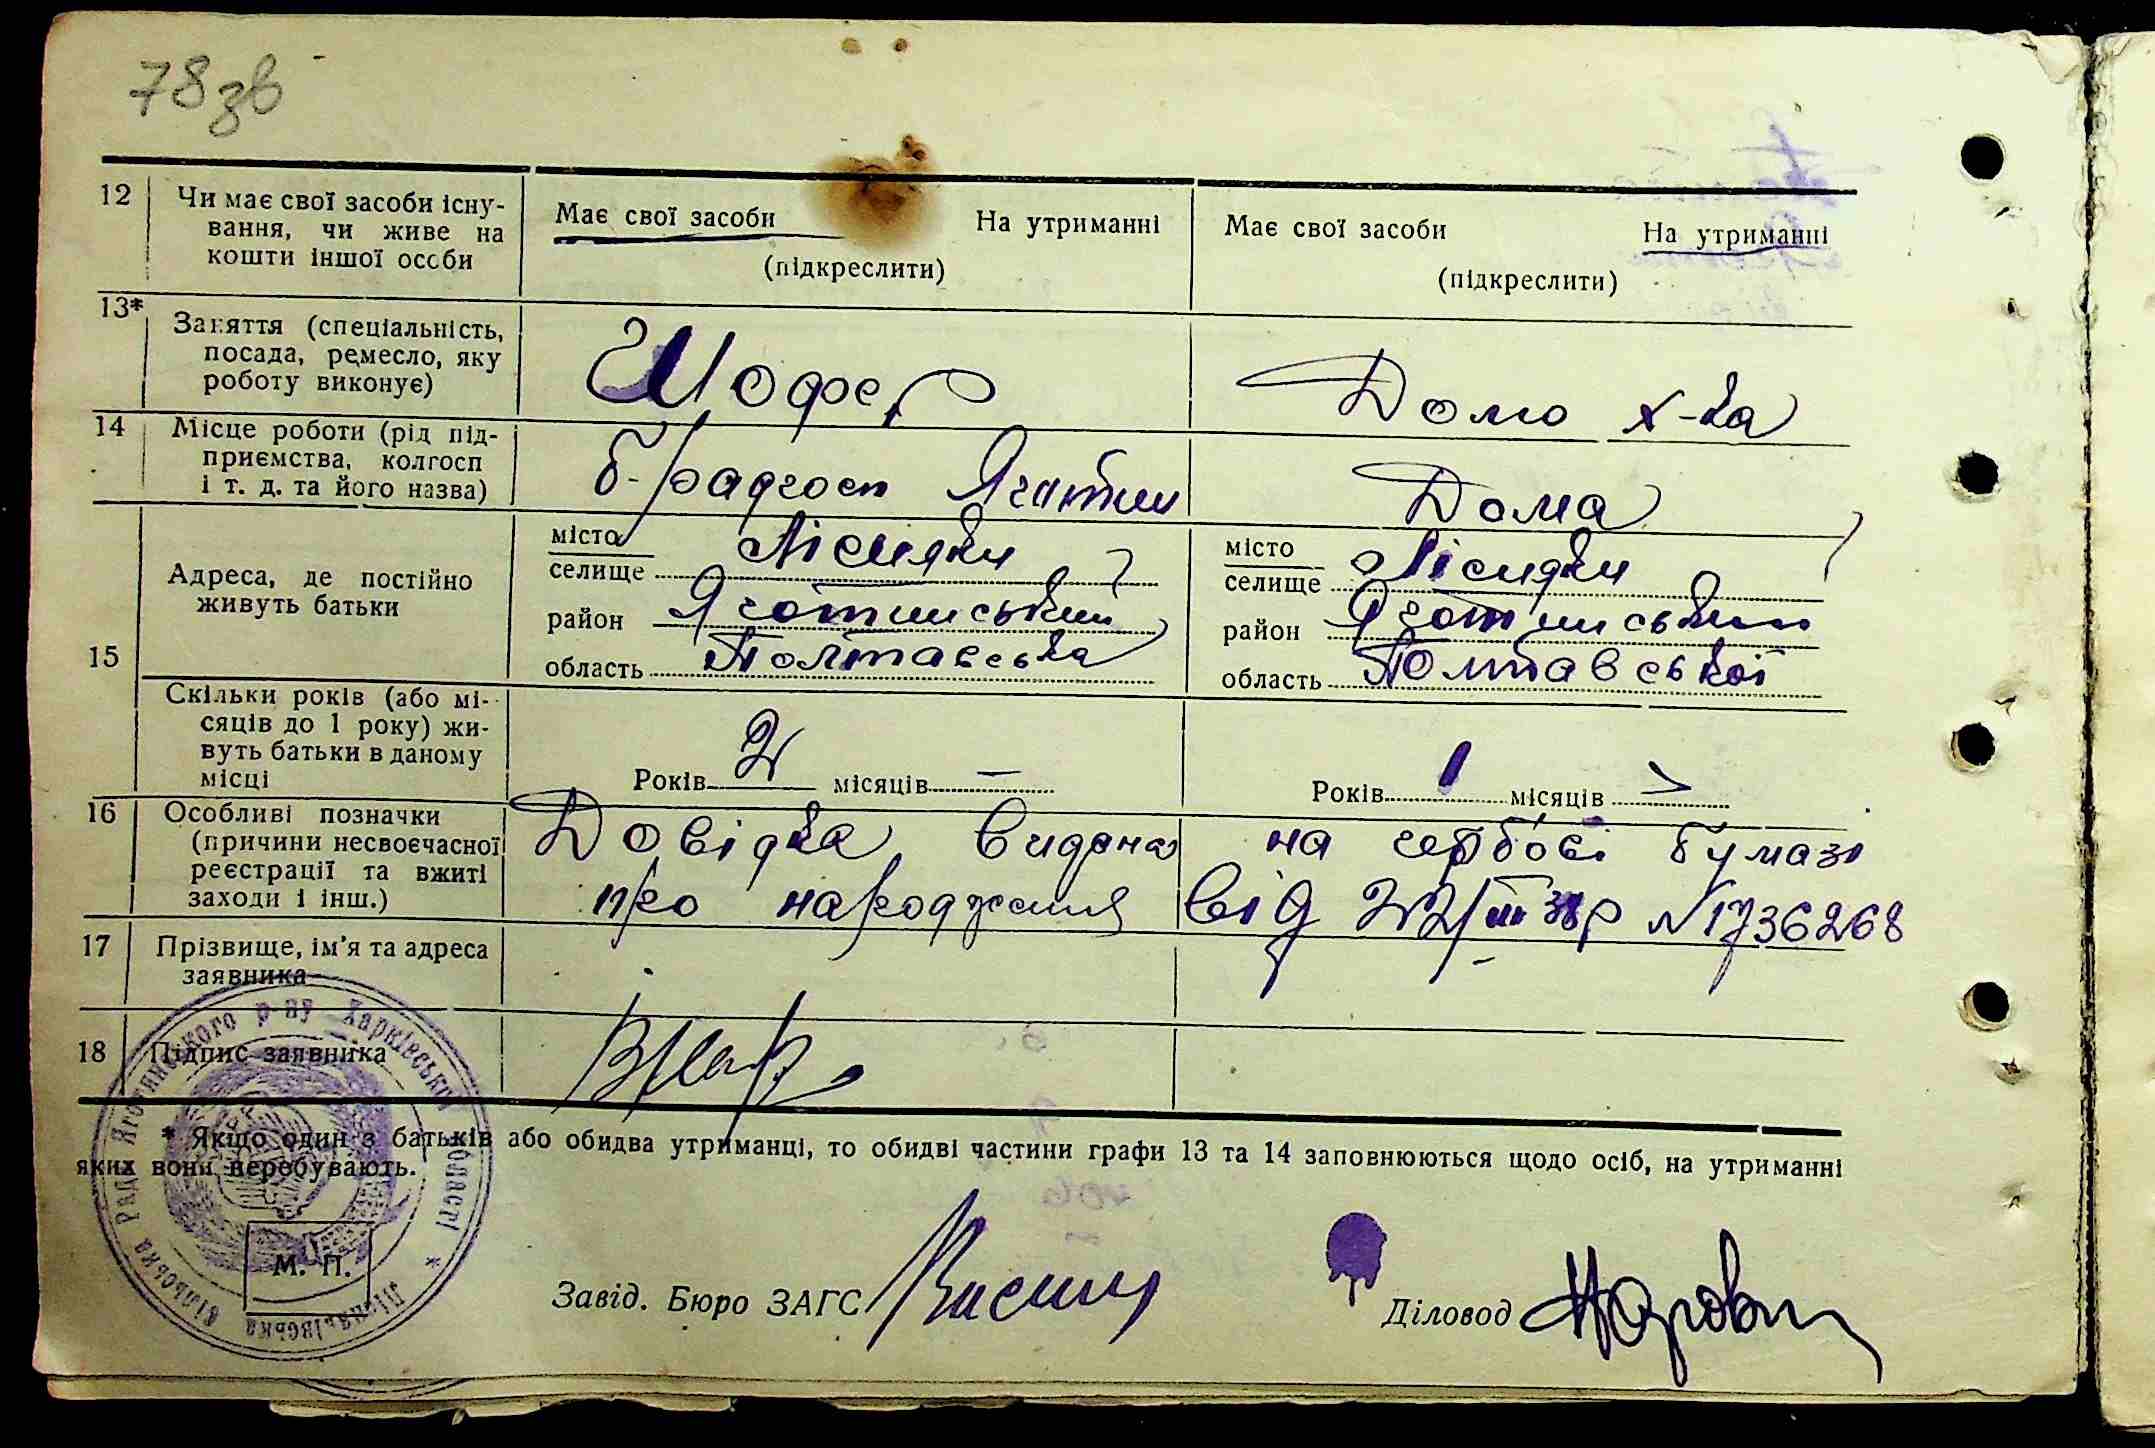 78зв
12 Чи має свої засоби існу-
вання, чи живе на
кошти іншої особи
Має свої засоби На утриманні
(підкреслити)
Має свої засоби На утриманні
(підкреслити)
13* Заняття (спеціальність,
посада, ремесло, яку
роботу виконує)
Шофер
Домо х-ка
14 Місце роботи (рід під-
приємства, колгосп
і т. д. та його назва)
б-радгосп Яготин
Дома
15 Адреса, де постійно
живуть батьки
місто
селище Лісняки
район Яготинський
область Полтавська
місто
селище Лісняки
район Яготинський
область Полтавської
Скільки років (або мі-
сяців до 1 року) жи-
вуть батьки в даному
місці
Років 2 місяців —
Років 1 місяців
16 Особливі позначки
(причини несвоєчасної
реєстрації та вжиті
заходи і інш.)
Довідка видана на гербові бумазі
про народження від 22/III 38р №1736268
17 Прізвище, ім'я та адреса
заявника
18 Підпис заявника
* Якщо один з батьків або обидва утриманці, то обидві частини графи 13 та 14 заповнюються щодо осіб, на утриманні
яких вони перебувають.
М. П.
Лісняківська сільська Рада Яготинського р-ну Харківської області *
Завід. Бюро ЗАГС
Діловод